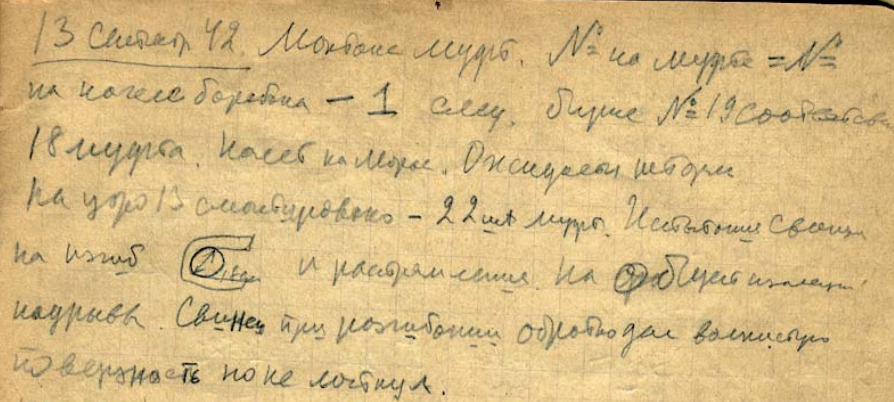 13 Сентяр 42. Монтаж муфт. № на муфте = №
на кабеле барабана – 1 след. бирке № 19 соответств
18 муфта. Налет на Морье. Ожидаем шторм
На утро 13 смонтировано – 22 шт муфт. Испытание свинца
на изгиб и растяжение. На
надрывы. Свинец при разгибании обратно дал волнистую
поверхность но не лопнул.